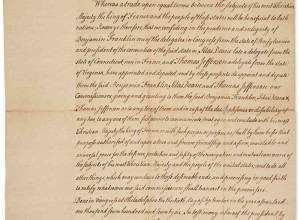 Whereas a trade upon equal terms between the subjects of his most Christian
Majesty the king of France and the people of these states will be beneficial to both
nations, Know ye therefore, that we confiding in the prudence and integrity of
Benjamin Franklin one of the delegates in Congress from the state of Pennsylvania
and president of the convention of the said state &c. Silas Deane late a delegate from the
state of Connecticut, now in France, and Thomas Jefferson a delegate from the state
of Virginia, have appointed and deputed, and by these presents do appoint and depute
them the said Benjamin Franklin, Silas Deane and Thomas Jefferson our
Commissioners, giving and granting to them the said Franklin, Deane &
Thomas Jefferson or to any two of them, and in case of the death, absence or disability of
any two, to any one of them, full power to communicate, treat, agree and conclude with his most
Christian Majesty the king of France, or with such person or persons, as shall by him be for that
purpose authorised, of and upon a true and sincere friendship, and a firm, inviolable and
universal peace for the defence, protection and safety of the navigation and mutual commerce of
the subjects of his most Christian Majesty and the people of the united states, and to do all
other things, which may conduce to those desireable ends, and promising in good faith
to ratify whatsoever our said commissioners shall transact in the premisses.
Done in Congress at Philadelphia the thirtieth day of September in the year of our Lord
one thousand seven hundred and seventy six. In testimony whereof the president, by